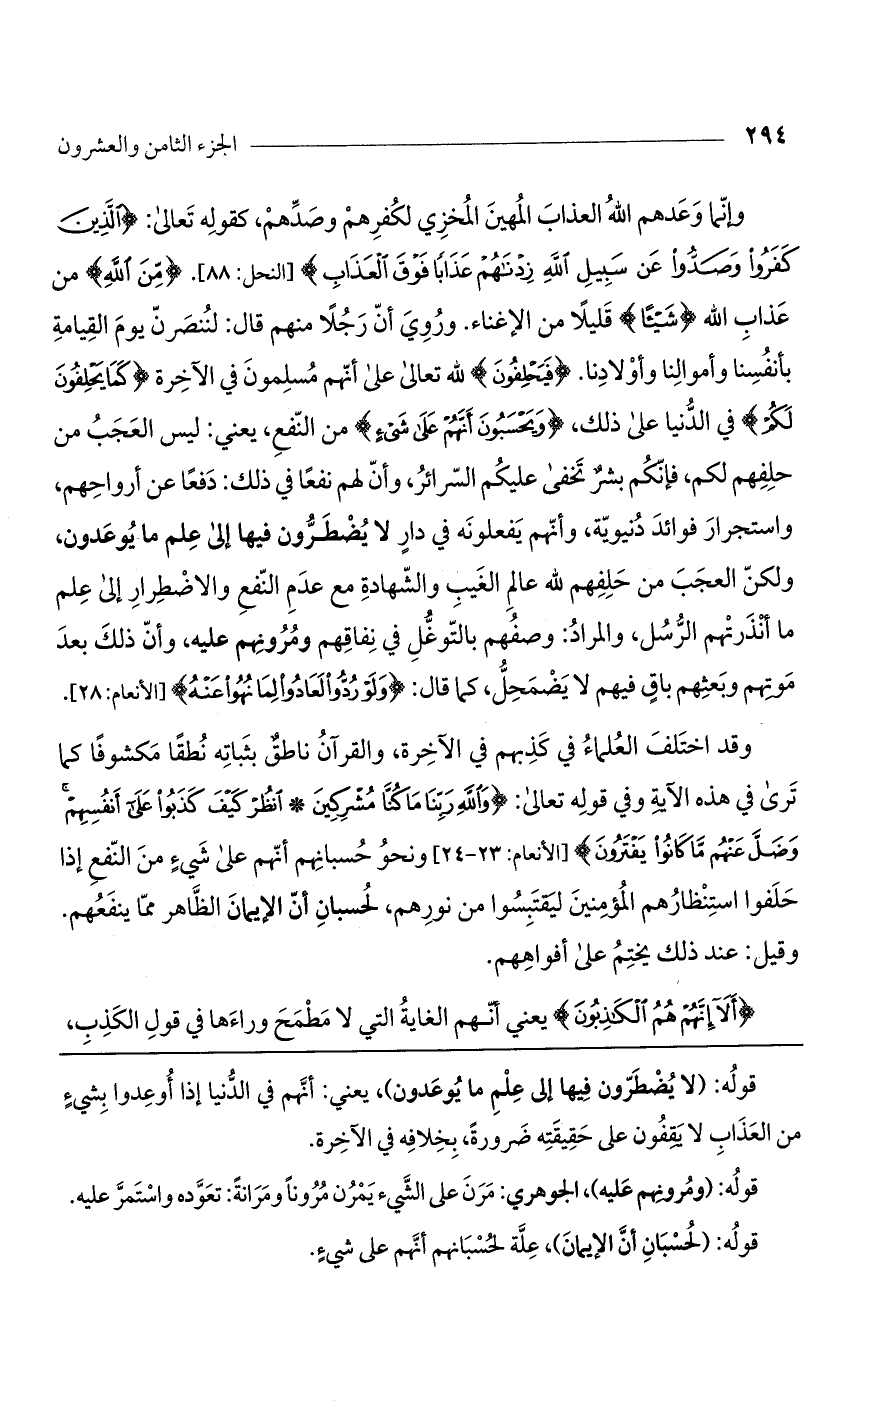 ٢٩٤ الجزء الثامن والعشرون
وإنّما وَعَدهم اللهُ العذابَ المُهينَ المُخزِي لكُفرِهمْ وصَدِّهمْ، كقولِه تَعالىٰ: ﴿ٱلَّذِينَ
كَفَرُوا۟ وَصَدُّوا۟ عَن سَبِيلِ ٱللَّهِ زِدْنَٰهُمْ عَذَابًا فَوْقَ ٱلْعَذَابِ﴾ [النحل: ٨٨]. ﴿مِّنَ ٱللَّهِ﴾ من
عَذابِ الله ﴿شَيْـًٔا﴾ قَليلًا من الإغناء. ورُوِيَ أنّ رَجُلًا منهم قال: لنُنصَرَنّ يومَ القِيامةِ
بأنفُسِنا وأموالِنا وأوْلادِنا. ﴿فَيَحْلِفُونَ﴾ لله تعالىٰ علىٰ أنّهم مُسلِمونَ في الآخِرة ﴿كَمَا يَحْلِفُونَ
لَكُمْ﴾ في الدُّنيا علىٰ ذلك، ﴿وَيَحْسَبُونَ أَنَّهُمْ عَلَىٰ شَىْءٍ﴾ من النّفعِ، يعني: ليس العَجَبُ من
حلِفِهم لكم، فإنّكم بشرٌ تَخفىٰ عليكم السّرائرُ، وأنّ لهم نفعًا في ذلك: دَفعًا عن أرواحِهم،
واستجرارَ فوائدَ دُنيويّة، وأنّهم يَفعلونَه في دارٍ لا يُضْطَرُّون فيها إلىٰ عِلم ما يُوعَدون،
ولكنّ العجَبَ من حَلِفِهم لله عالمِ الغَيبِ والشّهادةِ مع عدَمِ النّفعِ والاضْطِرارِ إلىٰ عِلم
ما أنْذَرتْهم الرُّسُل، والمرادُ: وصفُهم بالتّوغُّلِ في نِفاقِهم ومُرُونِهم عليه، وأنّ ذلكَ بعدَ
مَوتِهم وبَعثِهم باقٍ فيهم لا يَضْمَحِلُّ، كما قال: ﴿وَلَوْ رُدُّوا۟ لَعَادُوا۟ لِمَا نُهُوا۟ عَنْهُ﴾ [الأنعام: ٢٨].
وقد اختَلفَ العُلماءُ في كَذِبِهم في الآخِرة، والقرآنُ ناطقٌ بثَباتِه نُطقًا مَكشوفًا كما
تَرىٰ في هذه الآيةِ وفي قولِه تعالىٰ: ﴿وَٱللَّهِ رَبِّنَا مَا كُنَّا مُشْرِكِينَ * ٱنظُرْ كَيْفَ كَذَبُوا۟ عَلَىٰٓ أَنفُسِهِمْ ۚ
وَضَلَّ عَنْهُم مَّا كَانُوا۟ يَفْتَرُونَ﴾ [الأنعام: ٢٣-٢٤] ونحوُ حُسبانِهم أنّهم علىٰ شَيءٍ منَ النّفعِ إذا
حَلَفوا استِنْظارُهم المُؤمِنينَ ليَقتَبِسُوا من نورِهم، لحُسبانِ أنّ الإيمانَ الظَّاهر ممّا ينفَعُهم.
وقيل: عند ذلك يختِمُ علىٰ أفواهِهم.
﴿أَلَآ إِنَّهُمْ هُمُ ٱلْكَٰذِبُونَ﴾ يعني أنّهم الغايةُ التي لا مَطْمَحَ وراءَها في قولِ الكَذِبِ،
قولُه: (لا يُضْطَرّون فِيها إلى عِلْمِ ما يُوعَدون)، يعني: أنَّهم في الدُّنيا إذا أُوعِدوا بِشيءٍ
من العَذَابِ لا يَقِفُون على حَقِيقَتِه ضَرورةً، بِخِلافِه في الآخِرة.
قولُه: (ومُرونِهم عَليه)، الجوهري: مَرَنَ على الشَّيء يَمْرُن مُرُوناً ومَرَانةً: تعَوَّده واسْتَمرَّ عليه.
قولُه: (لحُسْبَانِ أنَّ الإيمانَ)، عِلَّة لحُسْبَانهم أنَّهم على شيءٍ.